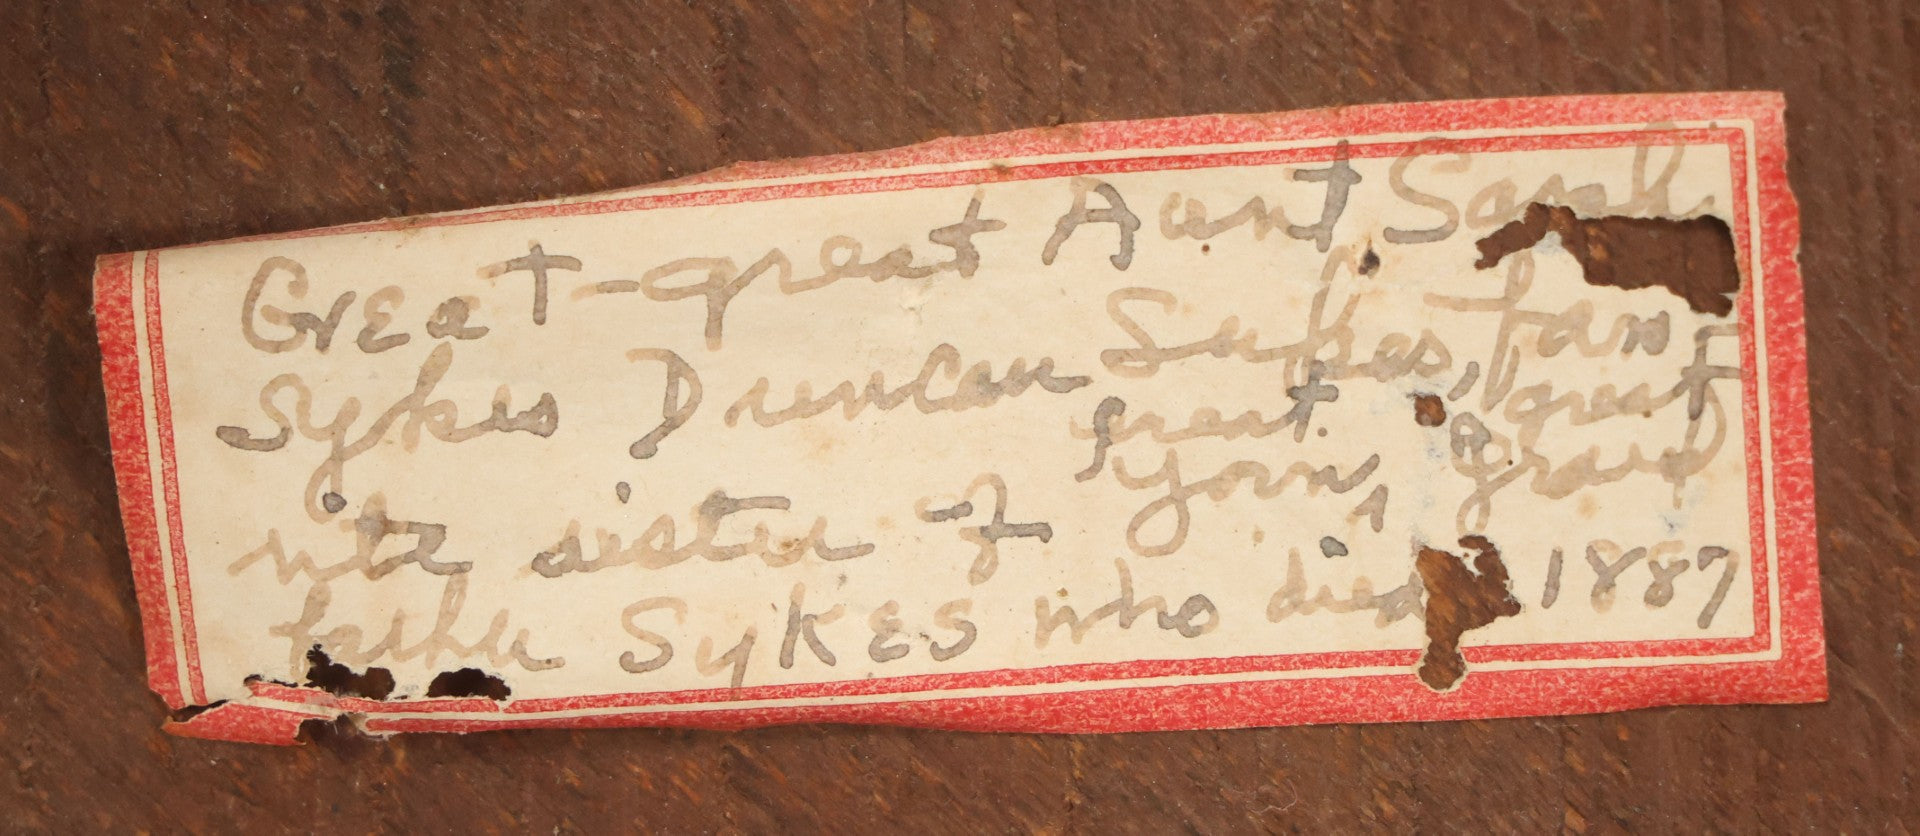 Great-great Aunt Sarah
Sykes Duncan Sykes, favo-
rite sister of your great, great grand
father SYKES who died 1887